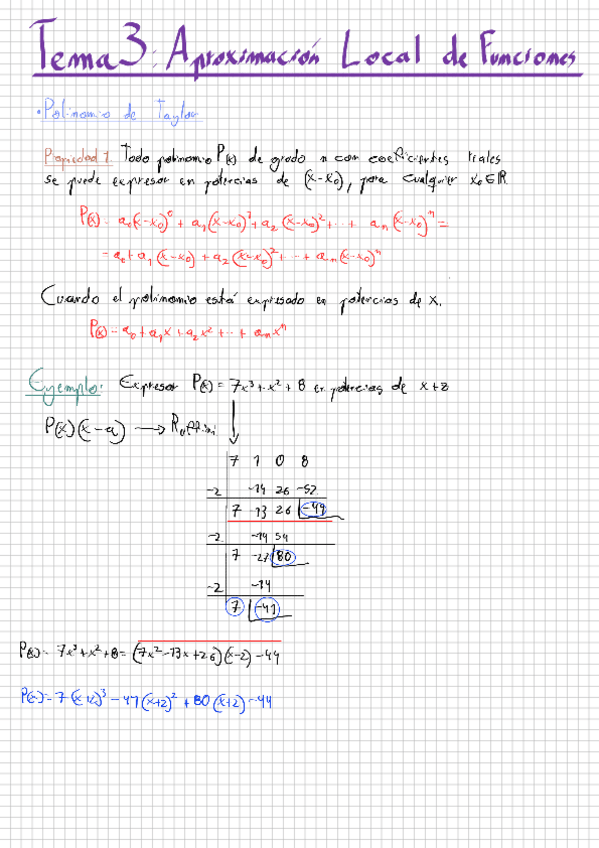 Tema 3: Aproximación Local de Funciones
• Polinomio de Taylor
Propiedad 1. Todo polinomio P(x) de grado n con coeficientes reales
se puede expresar en potencias de (x-x₀), para cualquier x₀∈ℝ
P(x) = a₀(x-x₀)⁰ + a₁(x-x₀)¹ + a₂(x-x₀)² + ... + aₙ(x-x₀)ⁿ =
= a₀ + a₁(x-x₀) + a₂(x-x₀)² + ... + aₙ(x-x₀)ⁿ
Cuando el polinomio está expresado en potencias de x.
P(x) = a₀ + a₁x + a₂x² + ... + aₙxⁿ
Ejemplo: Expresar P(x) = 7x³ + x² + 8 en potencias de x+2
P(x)(x-a) → Ruffini
7 1 0 8
-2 -14 26 -52
7 -13 26 -44
-2 -14 54
7 -27 80
-2 -14
7 -41
P(x) = 7x³ + x² + 8 = (7x² - 13x + 26)(x-2) - 44
P(x) = 7(x+2)³ - 41(x+2)² + 80(x+2) - 44